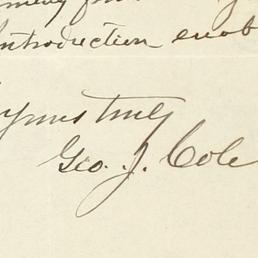 Introduction enab
Yours truly
Geo. J. Cole